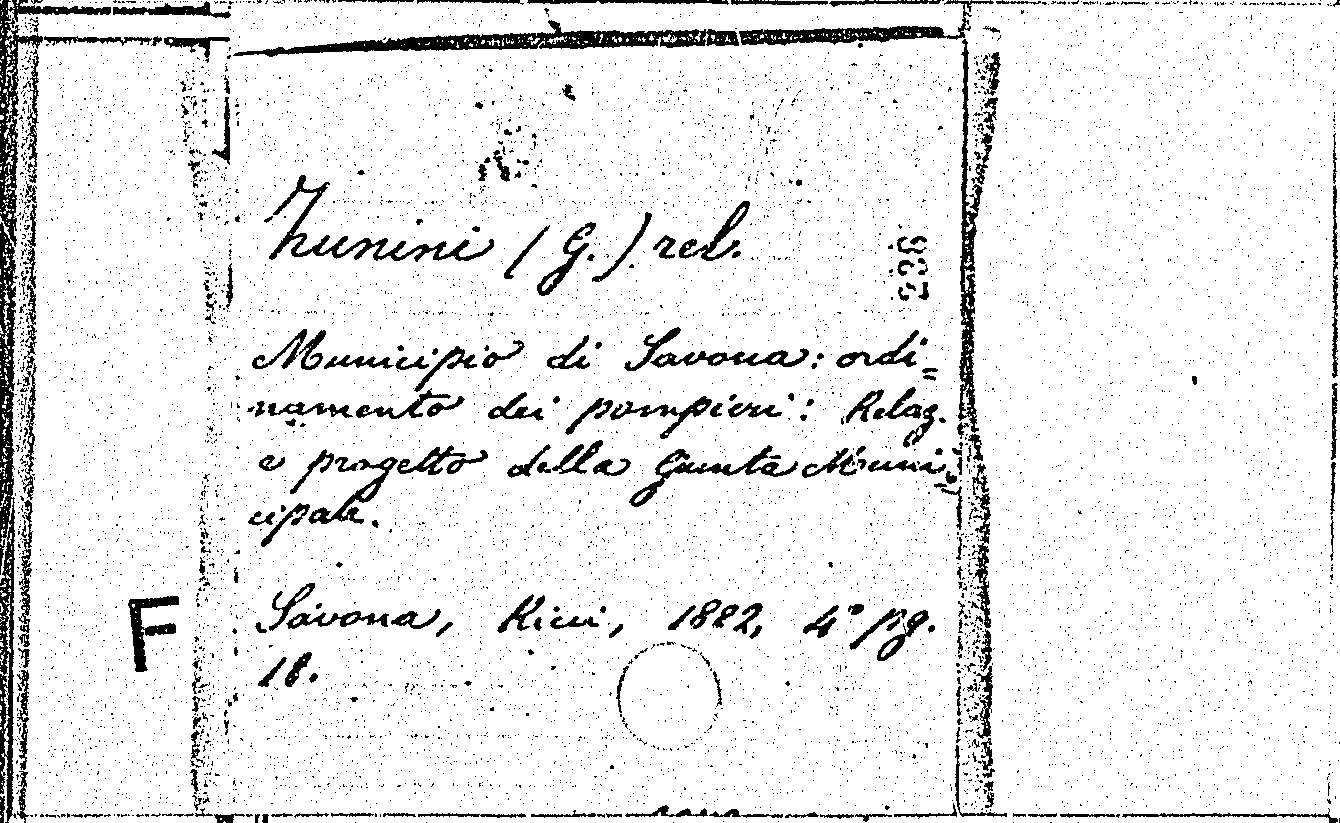 Zunini (G.) rel.
236
Municipio di Savona: ordi=
namento dei pompieri: Relaz.
e progetto della Giunta Muni
cipale.
Savona, Ricci, 1882, 4° pg.
18.
F